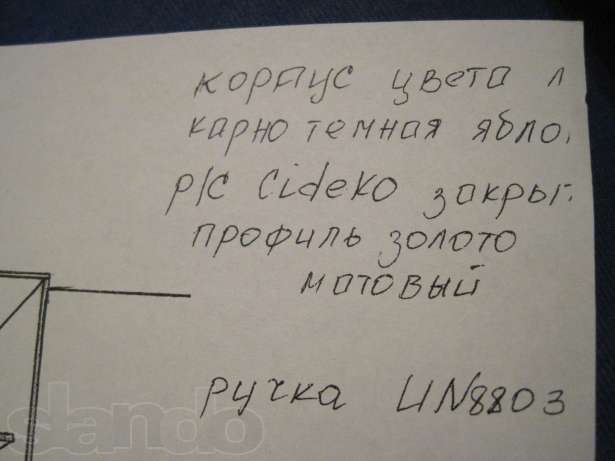 корпус цвета л
карно темная ябло
р/с Cideko закрыт.
профиль золото
матовый
ручка UN8803
slando